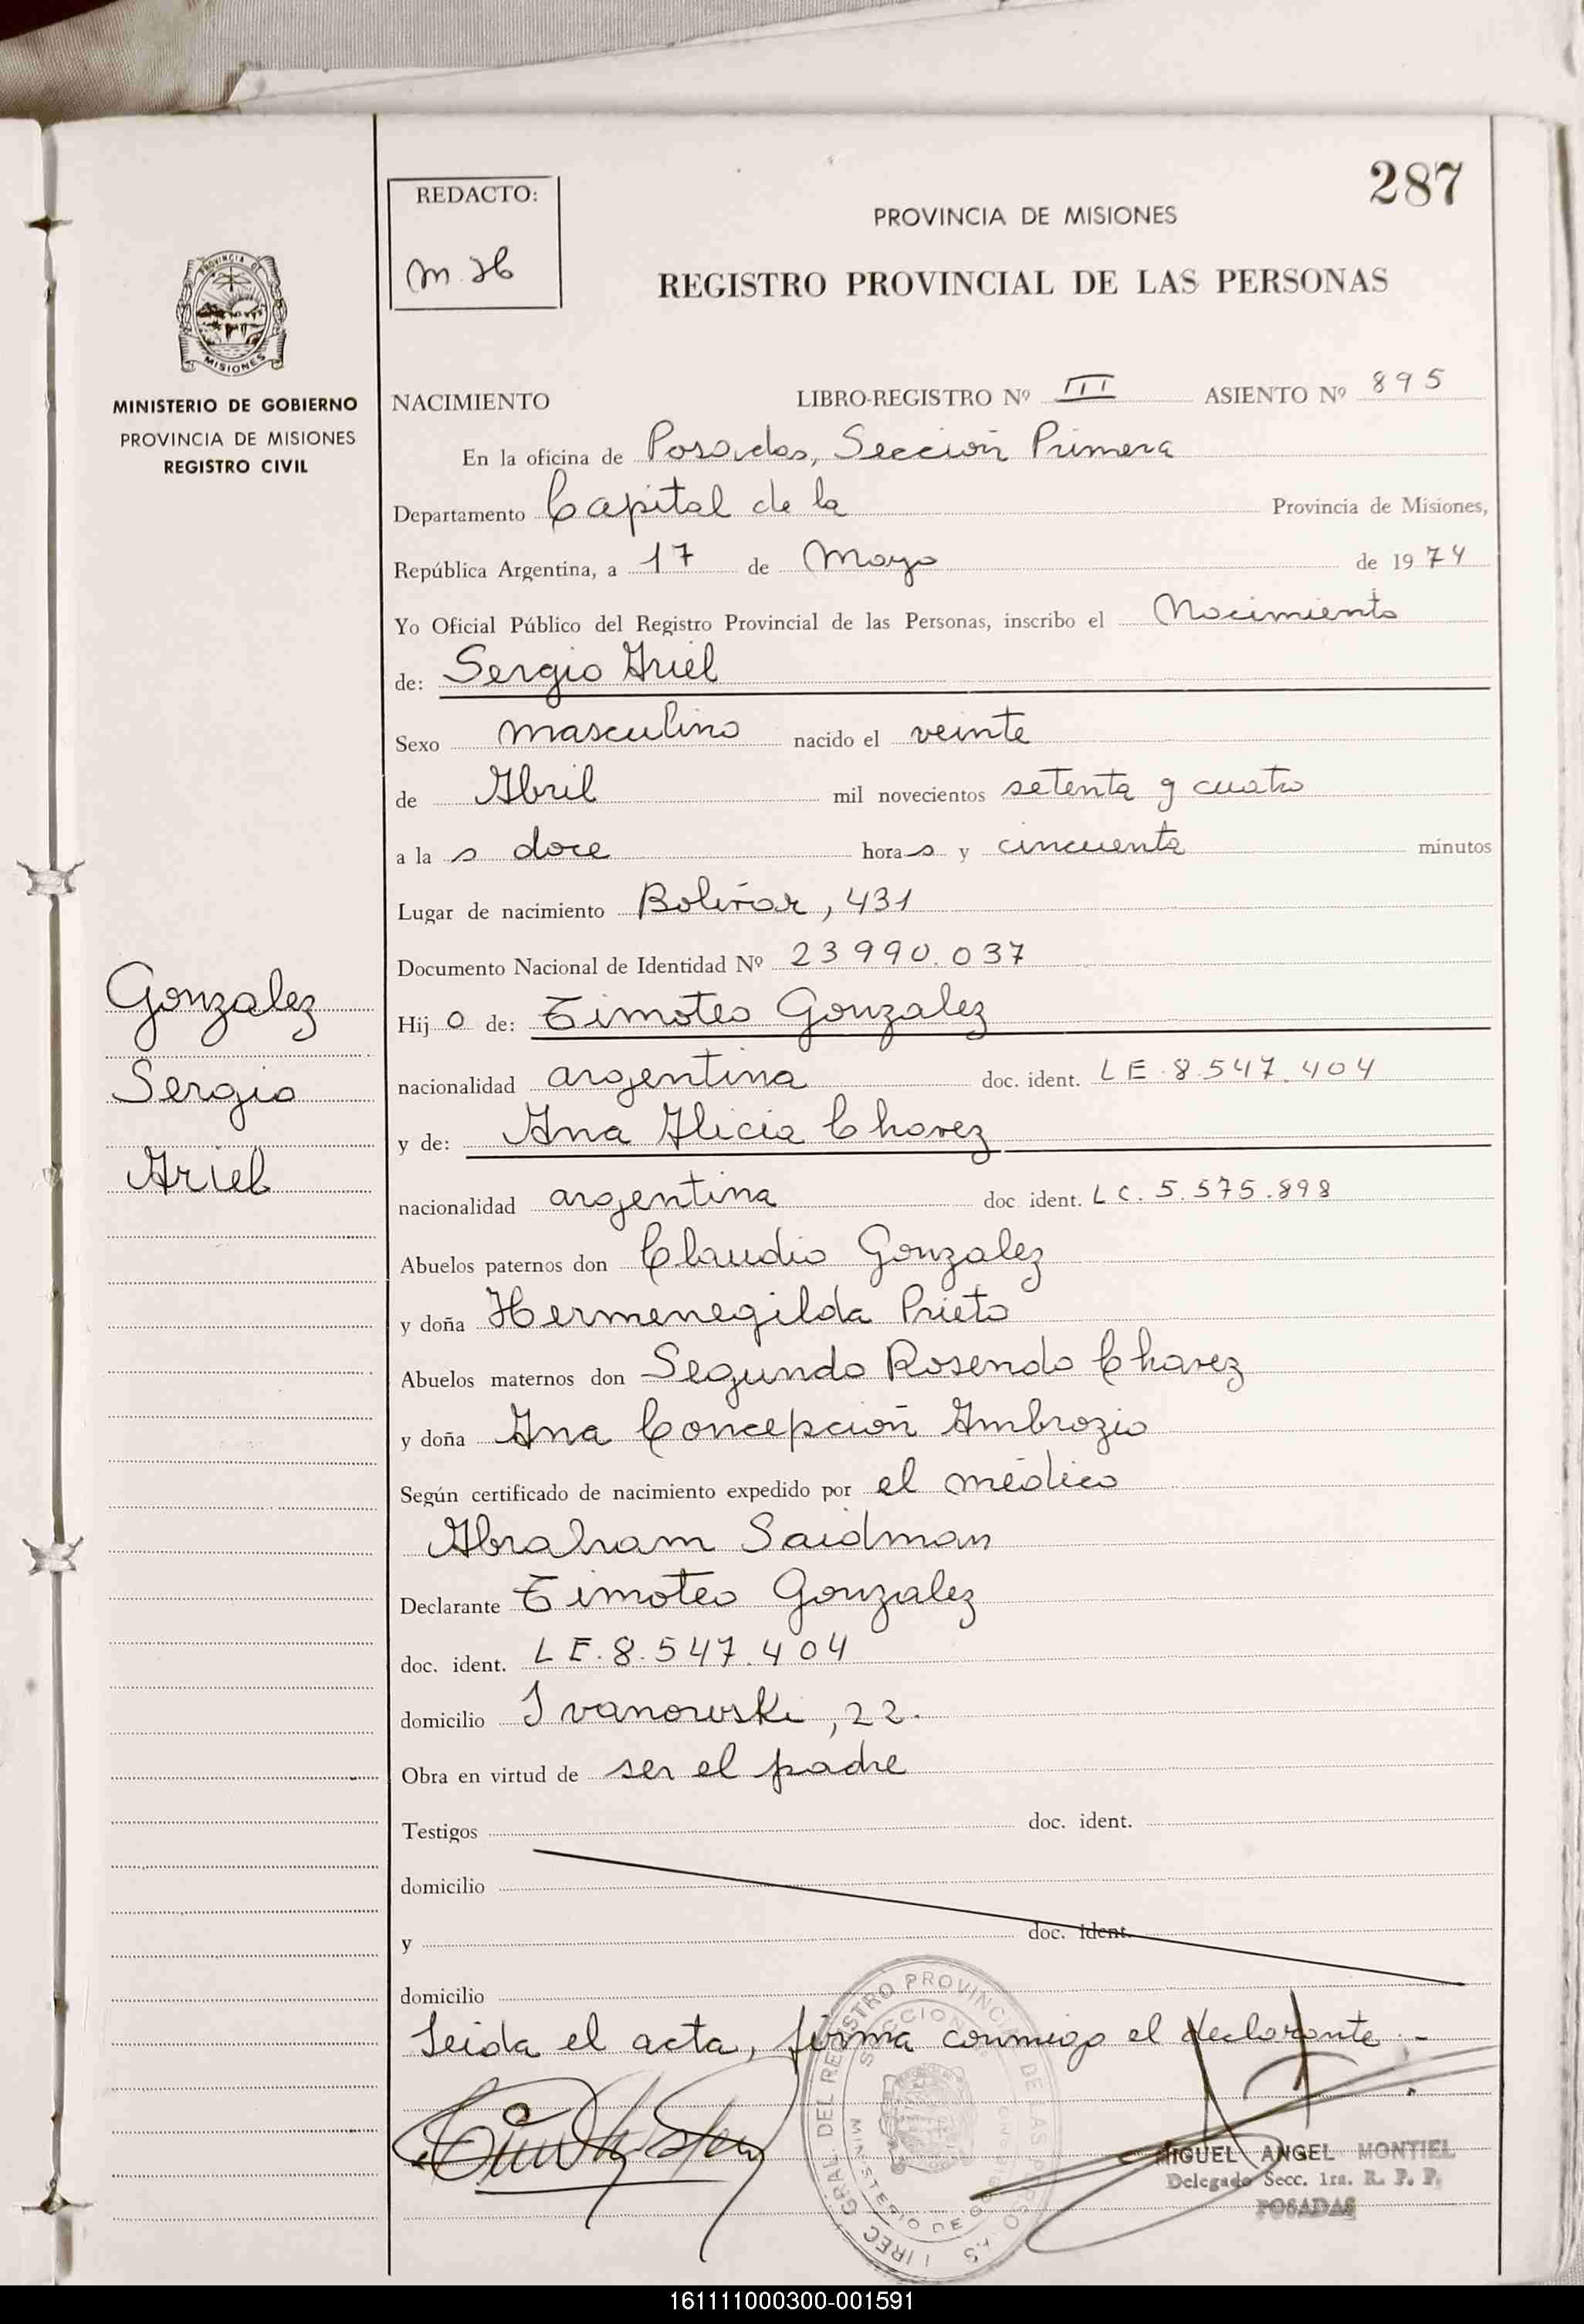 287
REDACTO:
m.H
PROVINCIA DE MISIONES
REGISTRO PROVINCIAL DE LAS PERSONAS
PROVINCIA DE
MISIONES
MINISTERIO DE GOBIERNO
PROVINCIA DE MISIONES
REGISTRO CIVIL
NACIMIENTO LIBRO-REGISTRO Nº III ASIENTO Nº 895
En la oficina de Posadas, Sección Primera
Departamento Capital de la Provincia de Misiones,
República Argentina, a 17 de Mayo de 1974
Yo Oficial Público del Registro Provincial de las Personas, inscribo el Nacimiento
de: Sergio Ariel
Sexo masculino nacido el veinte
de Abril mil novecientos setenta y cuatro
a la s doce hora s y cincuenta minutos
Lugar de nacimiento Bolivar, 431
Documento Nacional de Identidad Nº 23990.037
Hij o de: Timoteo Gonzalez
nacionalidad argentina doc. ident. LE.8.547.404
y de: Ana Alicia Chavez
nacionalidad argentina doc ident. LC.5.575.898
Abuelos paternos don Claudio Gonzalez
y doña Hermenegilda Prieto
Abuelos maternos don Segundo Rosendo Chavez
y doña Ana Concepción Ambrozio
Según certificado de nacimiento expedido por el médico
Abraham Saidman
Declarante Timoteo Gonzalez
doc. ident. LE.8.547.404
domicilio Ivanowski, 22.
Obra en virtud de ser el padre
Testigos doc. ident.
domicilio
y doc. ident.
domicilio
Leida el acta, firma conmigo el declarante.-
Gonzalez
Sergio
Ariel
MIGUEL ANGEL MONTIEL
Delegado Secc. 1ra. R. P. P.
POSADAS
161111000300-001591